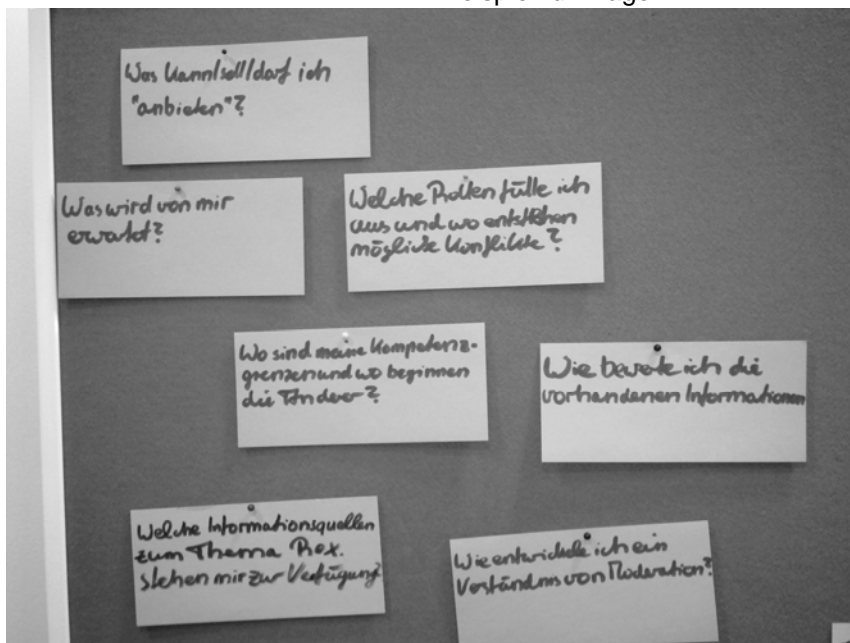 Was kann/soll/darf ich
"anbieten"?
Was wird von mir
erwartet?
Welche Rollen fülle ich
aus und wo entstehen
mögliche Konflikte?
Wo sind meine Kompetenz-
grenzen und wo beginnen
die Anderer?
Wie bewerte ich die
vorhandenen Informationen
Welche Informationsquellen
zum Thema
stehen mir zur Verfügung?
Wie entwickele ich ein
Verständnis von Moderation?